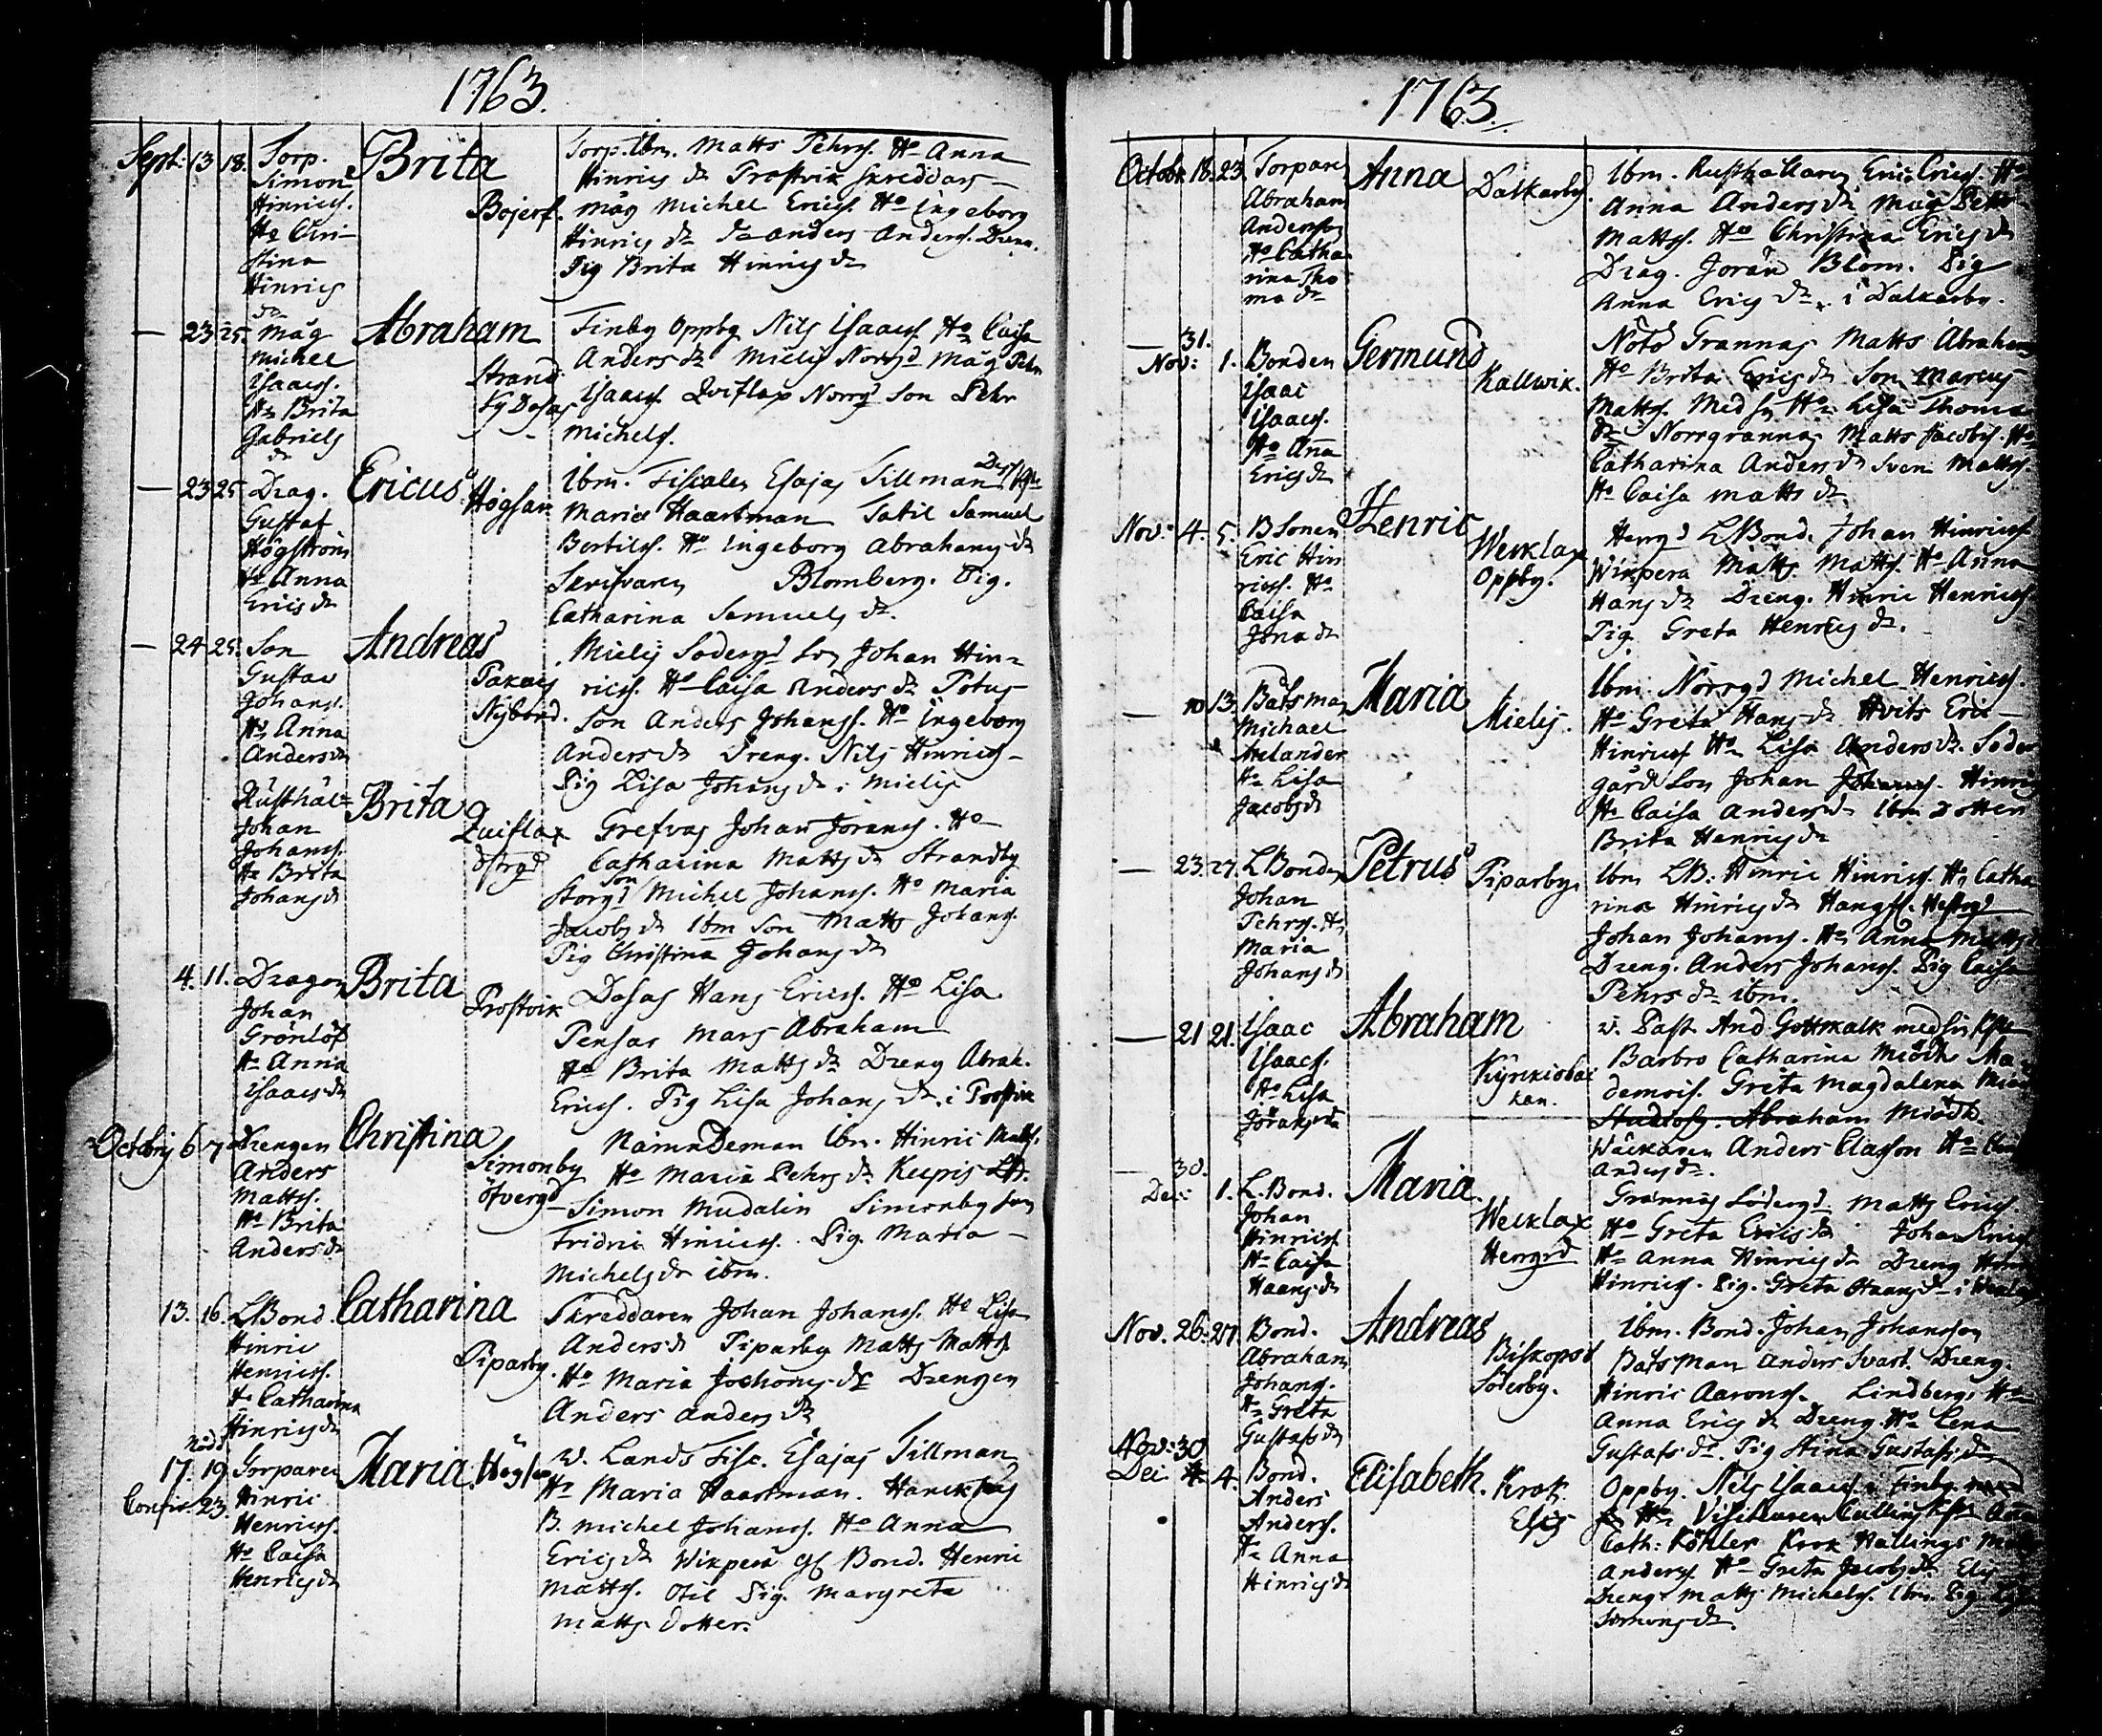 1763.
Sept. 13 18. Torp. Simon Hinrics. Ho Chri-stina Hinrics dr
Brita
Bojerf.
Torp. Ibm. Matts Pehrs. Ho Anna
Hinrics dr Prostvik Skreddars
Måg Michel Erics. Ho Ingeborg
Hinrics dr Anders Anders. Dreng.
Pig Brita Hinrics dr
— 23 25. Måg Michel Isaacs. Ho Brita Gabriels dr
Abraham
Strand
by Dosas
Finby Oppby Nils Isaacs. Ho Caisa
Anders dr Mielis Norrgd Måg Pehr
Isaacs. Qviflax Norrgd Son Pehr
Michels.
— 23 25. Drag. Gustaf Högström Ho Anna Erics dr
Ericus
Högsar
Ibm. Fiscalen Esajas Tillman
Maria Haartman Tatil Samuel
Bertils. Ho Ingeborg Abrahams dr
Skrifvaren Blomberg. Pig.
Catharina Samuels dr.
— 24 25. Son Gustav Johans. Ho Anna Anders dr
Andreas
Pakais
Nybond.
Mielis Södergd Son Johan Hin-
rics. Ho Caisa Anders dr Potus
Son Anders Johanss. Ho Ingeborg
Anders dr Dreng. Nils Hinrics
Pig Lisa Johans dr i Mielis
Rusthål. Johan Johans. Ho Brita Johans dr
Brita
Qviflax
Östrgd
Grefvas Johan Jörans. Ho
Catharina Matts dr Strandby
Storgd Son Michel Johans. Ho Maria
Jacobs dr Ibm Son Matts Johans.
Pig Christina Johans dr
4. 11. Dragon Johan Grönlöf Ho Anna Isaacs dr
Brita
Prostvik
Dosas Hans Erics. Ho Lisa
Pensar Mars Abraham
Ho Brita Matts dr Dreng Abrah.
Erics. Pig Lisa Johans dr i Prostvik
Octobris 6 7 Drengen Anders Matts. Ho Brita Anders dr
Christina
Simonby
Öfvergd
Nämndeman Ibm. Hinric Matts.
Ho Maria Pehrs dr Kupis
Simon Mudalin Simonby Son
Fridric Hinrics. Pig Maria
Michels dr ibm.
13. 16. LBond. Hinric Henrics. Ho Catharina Hinrics dr
Catharina
Piparby.
Skreddaren Johan Johans. Ho Lisa
Anders dr Piparby Matts Matts.
Ho Maria Jochoms dr Drengen
Anders Anders dr
Nöd d.
17. 19. Confir. 23. Torparen Hinric Henrics. Ho Caisa Henrics dr
Maria.
Högsar
V. Lands Fisc. Esajas Tillman
Ho Maria Haartman.
B. Michel Johans. Ho Anna
Erics dr Wikpera Bond. Henric
Matts. Otil Pig. Margreta
Matts Dotter.
1763.
Octobr. 18. 23. Torparen Abraham Andersson Ho Catharina Thoma dr
Anna
Dalkarby.
Ibm. Rusthållaren Eric Erics. Ho
Anna Anders dr Måg Petter
Matts. Ho Christina Erics dr
Drag. Jöran Blom. Pig
Anna Erics dr i Dalkarby.
— 31. Nov: 1. Bonden Isaac Isaacs. Ho Anna Erics dr
Germund
Kallwik.
Nötö Grannas Matts Abraham
Ho Brita Erics dr Son Marcus
Matts. Med sin Ho Lisa Thoma
dr Norrgrannas Matts Jacobs. Ho
Catharina Anders dr Sven Matts.
Ho Caisa Matts dr
Nov: 4. 5. BSonen Eric Hinrics. Ho Caisa Jona dr
Henric
Werklax
Oppby.
Herrgd LBond. Johan Hinrics
Wikpera Matts Matts. Ho Anna
Hans dr Dreng. Hinric Henrics
Pig. Greta Henrics dr.
— 10 13. Båtsman Michael Melander Ho Lisa Jacobs dr
Maria
Mielis.
Ibm. Norrgd Michel Henrics.
Ho Greta Hans dr Hvits Eric
Hinrics Ho Lisa Anders dr. Söder
gård Son Johan Hinric
Ho Caisa Anders dr Ibm Dotter
Brita Henrics dr
— 23. 27. LBonden Johan Pehrs. Ho Maria Johans dr
Petrus
Piparby.
Ibm LB: Hinric Hinrics. Ho Catha
rina Hinrics dr
Johan Johans. Ho Anna Matts
Dreng. Anders Johans. Pig Caisa
Pehrs dr ibm.
— 21 21. Isaac Isaacs. Ho Lisa Jörans dr
Abraham
Kyrkiobac
kan.
v. Past. And Gottskalk med sin
Barbro Catharina Miödh Ma-
demois. Greta Magdalena Miödh
Studiosus Abraham Miödh.
Wäckaren Anders Classon Ho
Anders dr.
30. Dec: 1. L.Bond. Johan Hinrics Ho Caisa Haans dr
Maria.
Werklax
Herrgrd
Grannas Södergd Matts Erics.
Ho Greta Erics dr Johan Erics
Ho Anna Hinrics dr Dreng
Hinrics. Pig. Greta Haans dr i
Nov. 26. 27. Bond. Abraham Johans. Ho Greta Gustafs dr
Andreas
Biskopsö
Söderby.
Ibm. Bond. Johan Johansson
Båtsman Anders Svart. Dreng.
Hinric Aarons. Lindbergs Ho
Anna Erics dr Dreng. Ho Lena
Gustafs dr. Pig Stina Gustafs dr
Nov: 30 Dec 4. Bond. Anders Anders. Ho Anna Hinrics dr
Elisabeth.
Krok
Elis
Oppby. Nils Isaacs i Finby
Ho Visiteuren Culling
Cath: Köhler Krok Hallings
Anders Ho Greta Jacobs dr Elis
Dreng Matts Michels. Ibm. Pig
Simons dr.